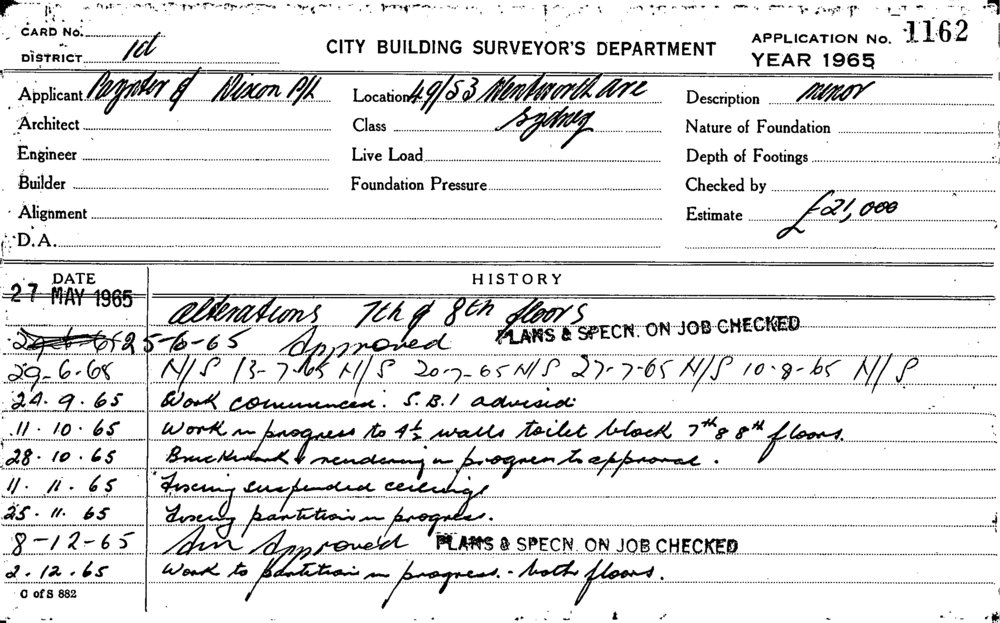 CARD No.
DISTRICT 1d
CITY BUILDING SURVEYOR'S DEPARTMENT
APPLICATION No. 1162
YEAR 1965
Applicant Paynter & Dixon P/L
Location 49/53 Wentworth Ave
Sydney
Description minor
Architect
Class
Nature of Foundation
Engineer
Live Load
Depth of Footings
Builder
Foundation Pressure
Checked by
Alignment
Estimate £21,000
D.A.
DATE HISTORY
27 MAY 1965 Alterations 7th & 8th floors
25-6-65 Approved PLANS & SPECN. ON JOB CHECKED
29-6-65 N/S 13-7-65 N/S 20-7-65 N/S 27-7-65 N/S 10-8-65 N/S
24.9.65 Work commenced. S.B.I advised
11.10.65 Work in progress to 4½ walls toilet block 7th & 8th floors.
28.10.65 Brickwork & rendering in progress to approval.
11.11.65 Fixing suspended ceilings
25.11.65 Fixing partition in progress.
8-12-65 Approved PLANS & SPECN. ON JOB CHECKED
2.12.65 Work to partition in progress. - both floors.
C of S 882